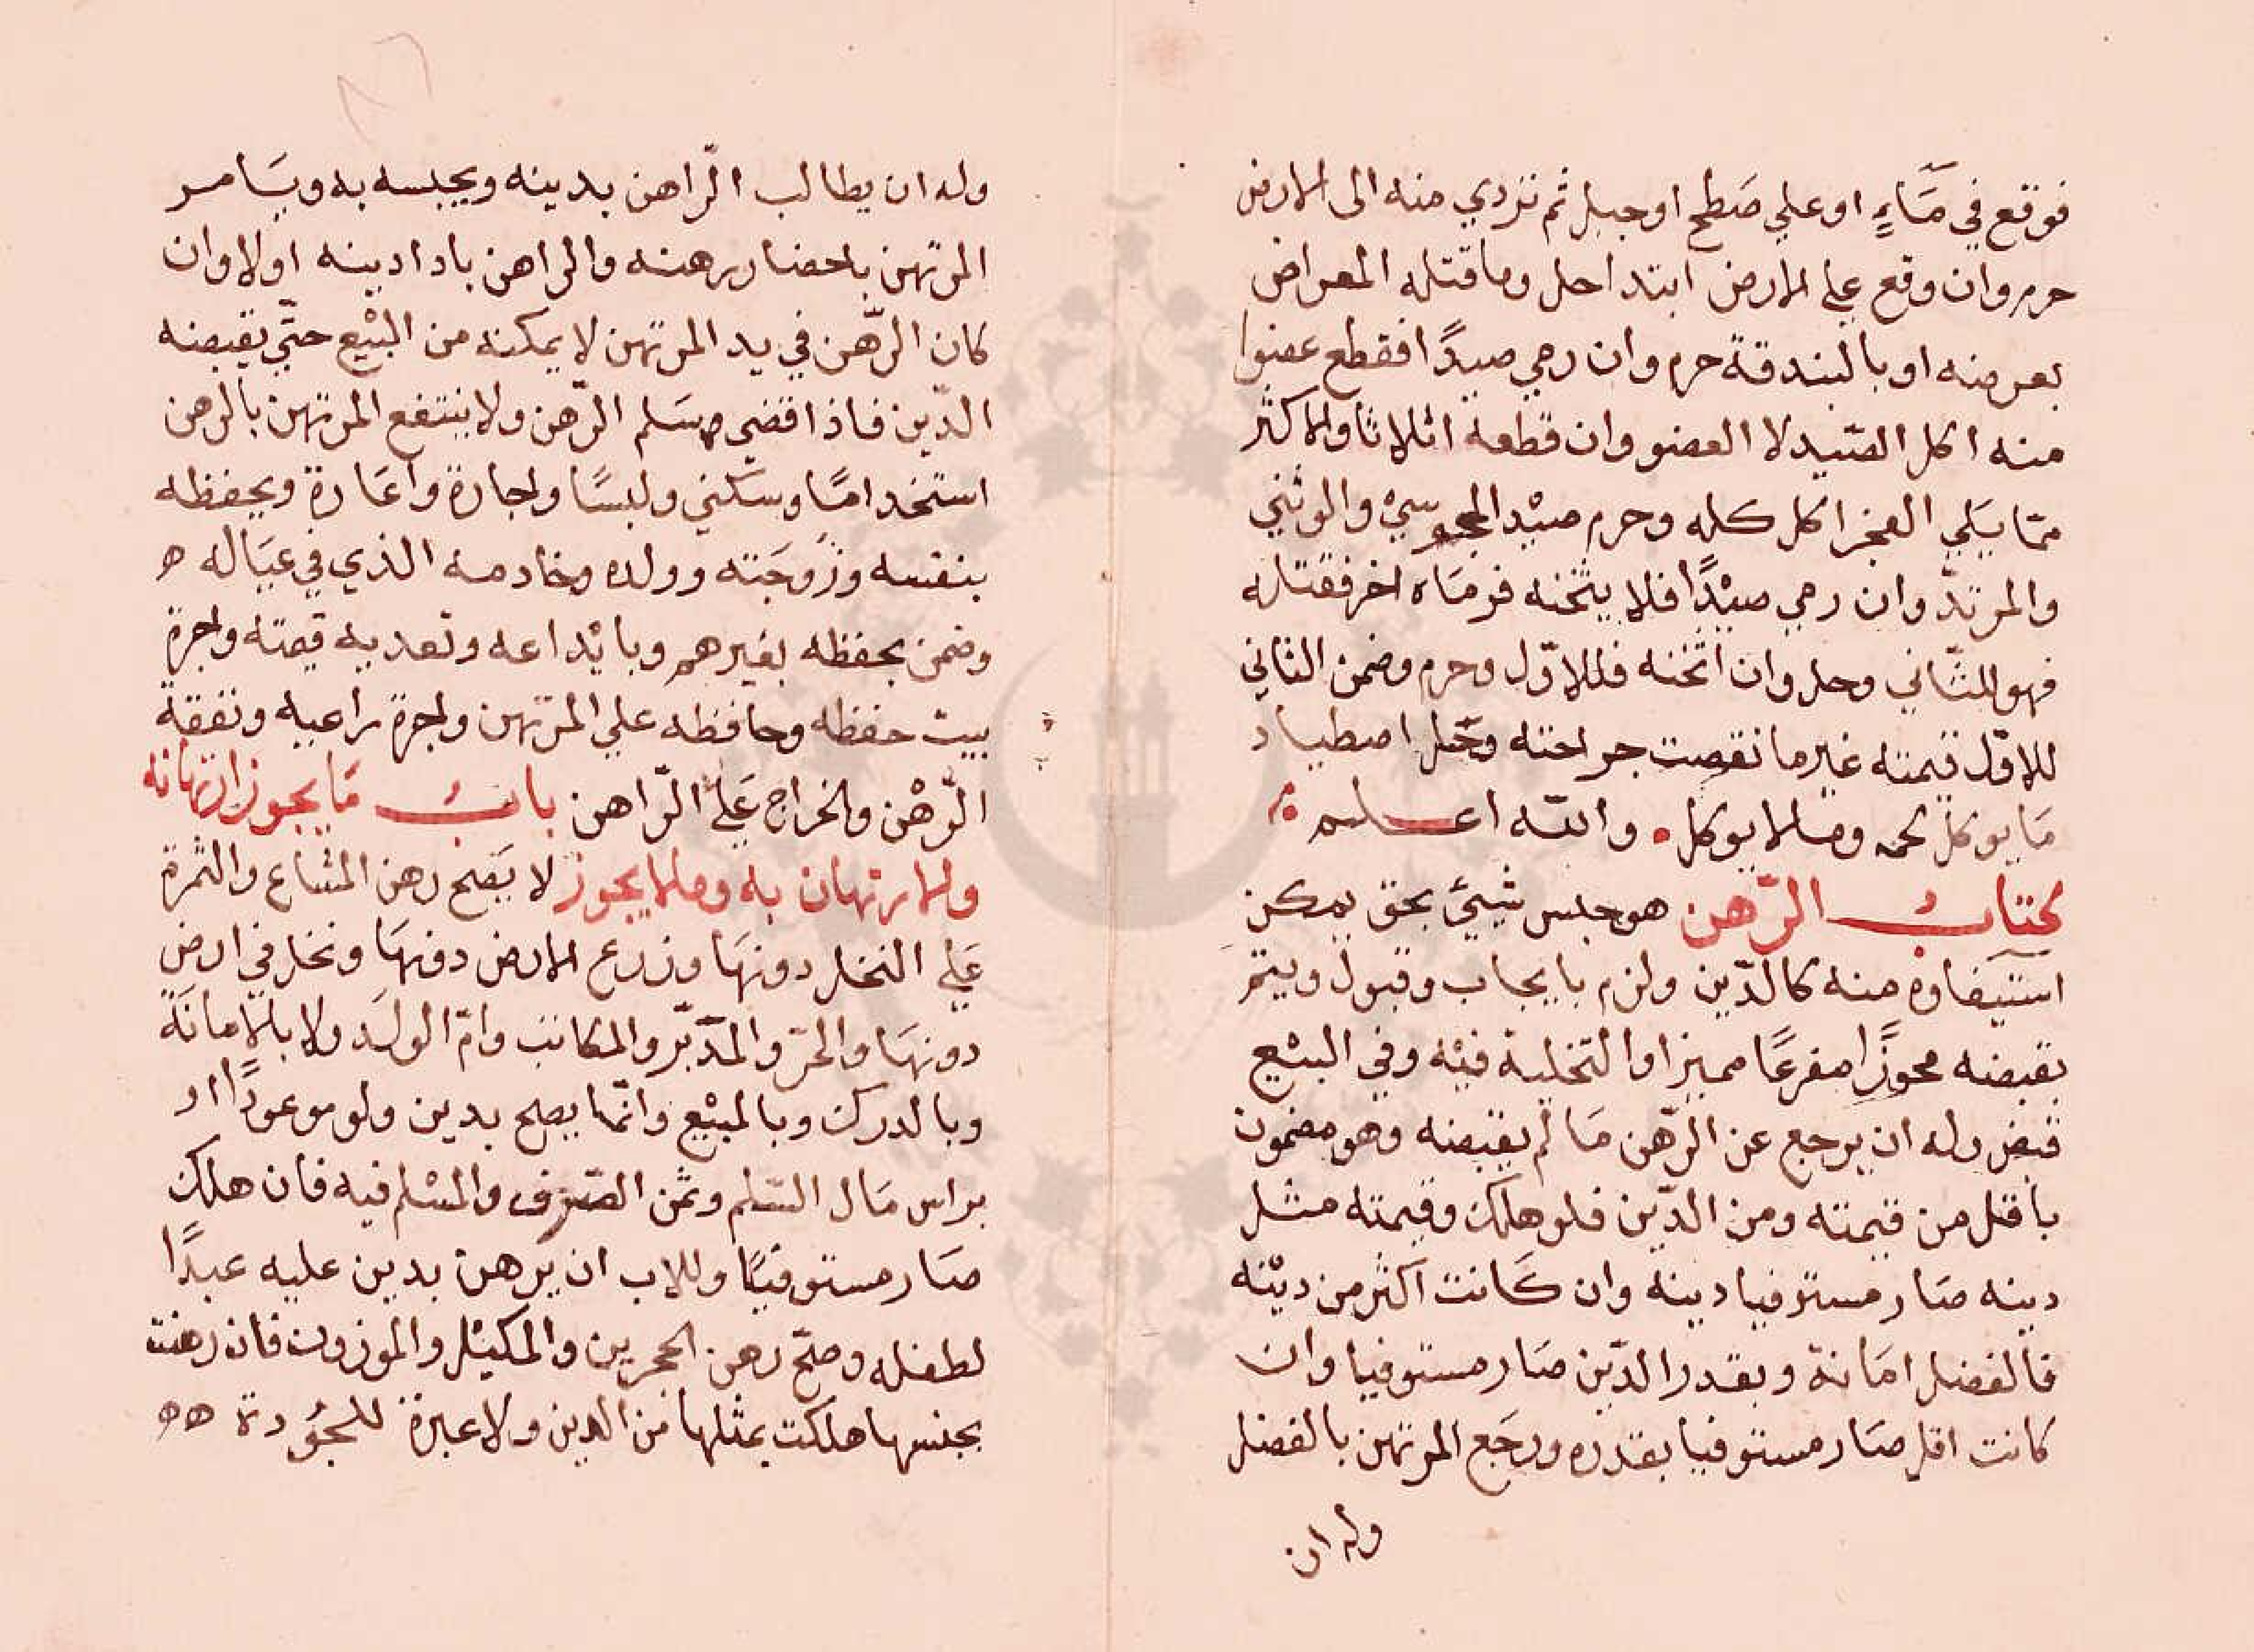 فوقع في مَّاءٍ او علي صَطح او جبل ثم تردي منه الى الارض
حرم وان وقع علي الارض ابتدا حل وما قتله المعراض
بعرضه او بالبندقة حرم وان رمي صيدًا فقطع عضوا
منه اكل الصّيد لا العضو وان قطعه اثلاثا والاكثر
ممّا يَلي العجز اكل كله وحرم صيْد المجوسيْ والوثني
والمرتدّ وان رمي صيْدًا فلا يثخنه فرمَاه اخر فقتله
فهو للثّاني وحل وان اثخنه فللاوّل وحرم وضمن الثاني
للاوّل قيمته غير ما نقصت جراحته وحَّل اصطياد
مَا يوكل لحمه وما لا يوكل • والله اعلم
كتابُ الرّهن هو حبس شيئ بحق يمكن
استيفاوه منه كالدّين ولزم بايجاب وقبول ويتم
بقبضه محوزًا مفرعًا مميزا والتخلية فيْه وفي البيْع
قبض وله ان يرجع عن الرّهن مَا لم يقبضه وهو مضمون
باقل من قيمته ومن الدّين فلو هلك وقيمته مثل
دينه صَار مستوفيا دينه وان كَانت اكثر من ديْنه
فالفضل امَانة وبقدر الدّين صَار مستوفيا وان
كانت اقل صَار مستوفيا بقدره ورجَع المرتهن بالفضل
وله ان
وله ان يطالب الرّاهن بدينه ويحبسه به ويَامر
المرتهن باحضار رهنه والراهن بادا دينه اولا وان
كان الرّهن في يد المرتهن لا يمكنه من البيْع حتّي يقبضه
الدّين فاذا قضي سَلم الرّهن ولا ينتفع المرتهن بالرهن
استخدامًا وسكني ولبسًا واجارة واعَارة ويحفظه
بنفسه وزَوجَته وولده وخادمه الذي في عيَاله ه
وضمن بحفظه بغيرهم وبايْداعه وتعديه قيمته واجرة
بيت حفظه وحافظه علي المرتهن واجرة راعيه ونفقة
الرّهْن والخراج عَلي الرّاهن بابُ مَا يجوز ارتهانه
والارتهان به وما لا يجوز لا يَصح رهن المشاع والثمرة
عَلي النخل دونهَا وزرع الارض دونهَا ونخل في ارض
دونهَا والحرّ والمدّبّر والمكاتب وامّ الولَد ولا بالامانَة
وبالدرك وبالمبيْع وانّما يصح بدين ولو موعودًا او
براس مَال السّلم وثمن الصّرف والمسْلم فيه فان هلك
صَار مستوفيًا وللاب ان يرهن بدين عليه عبدًا
لطفله وصحّ رهن الحجرين والمكيْل والموزون فان رهنت
بجنسها هلكت بمثلها من الدين ولا عبرة للجُودة هه